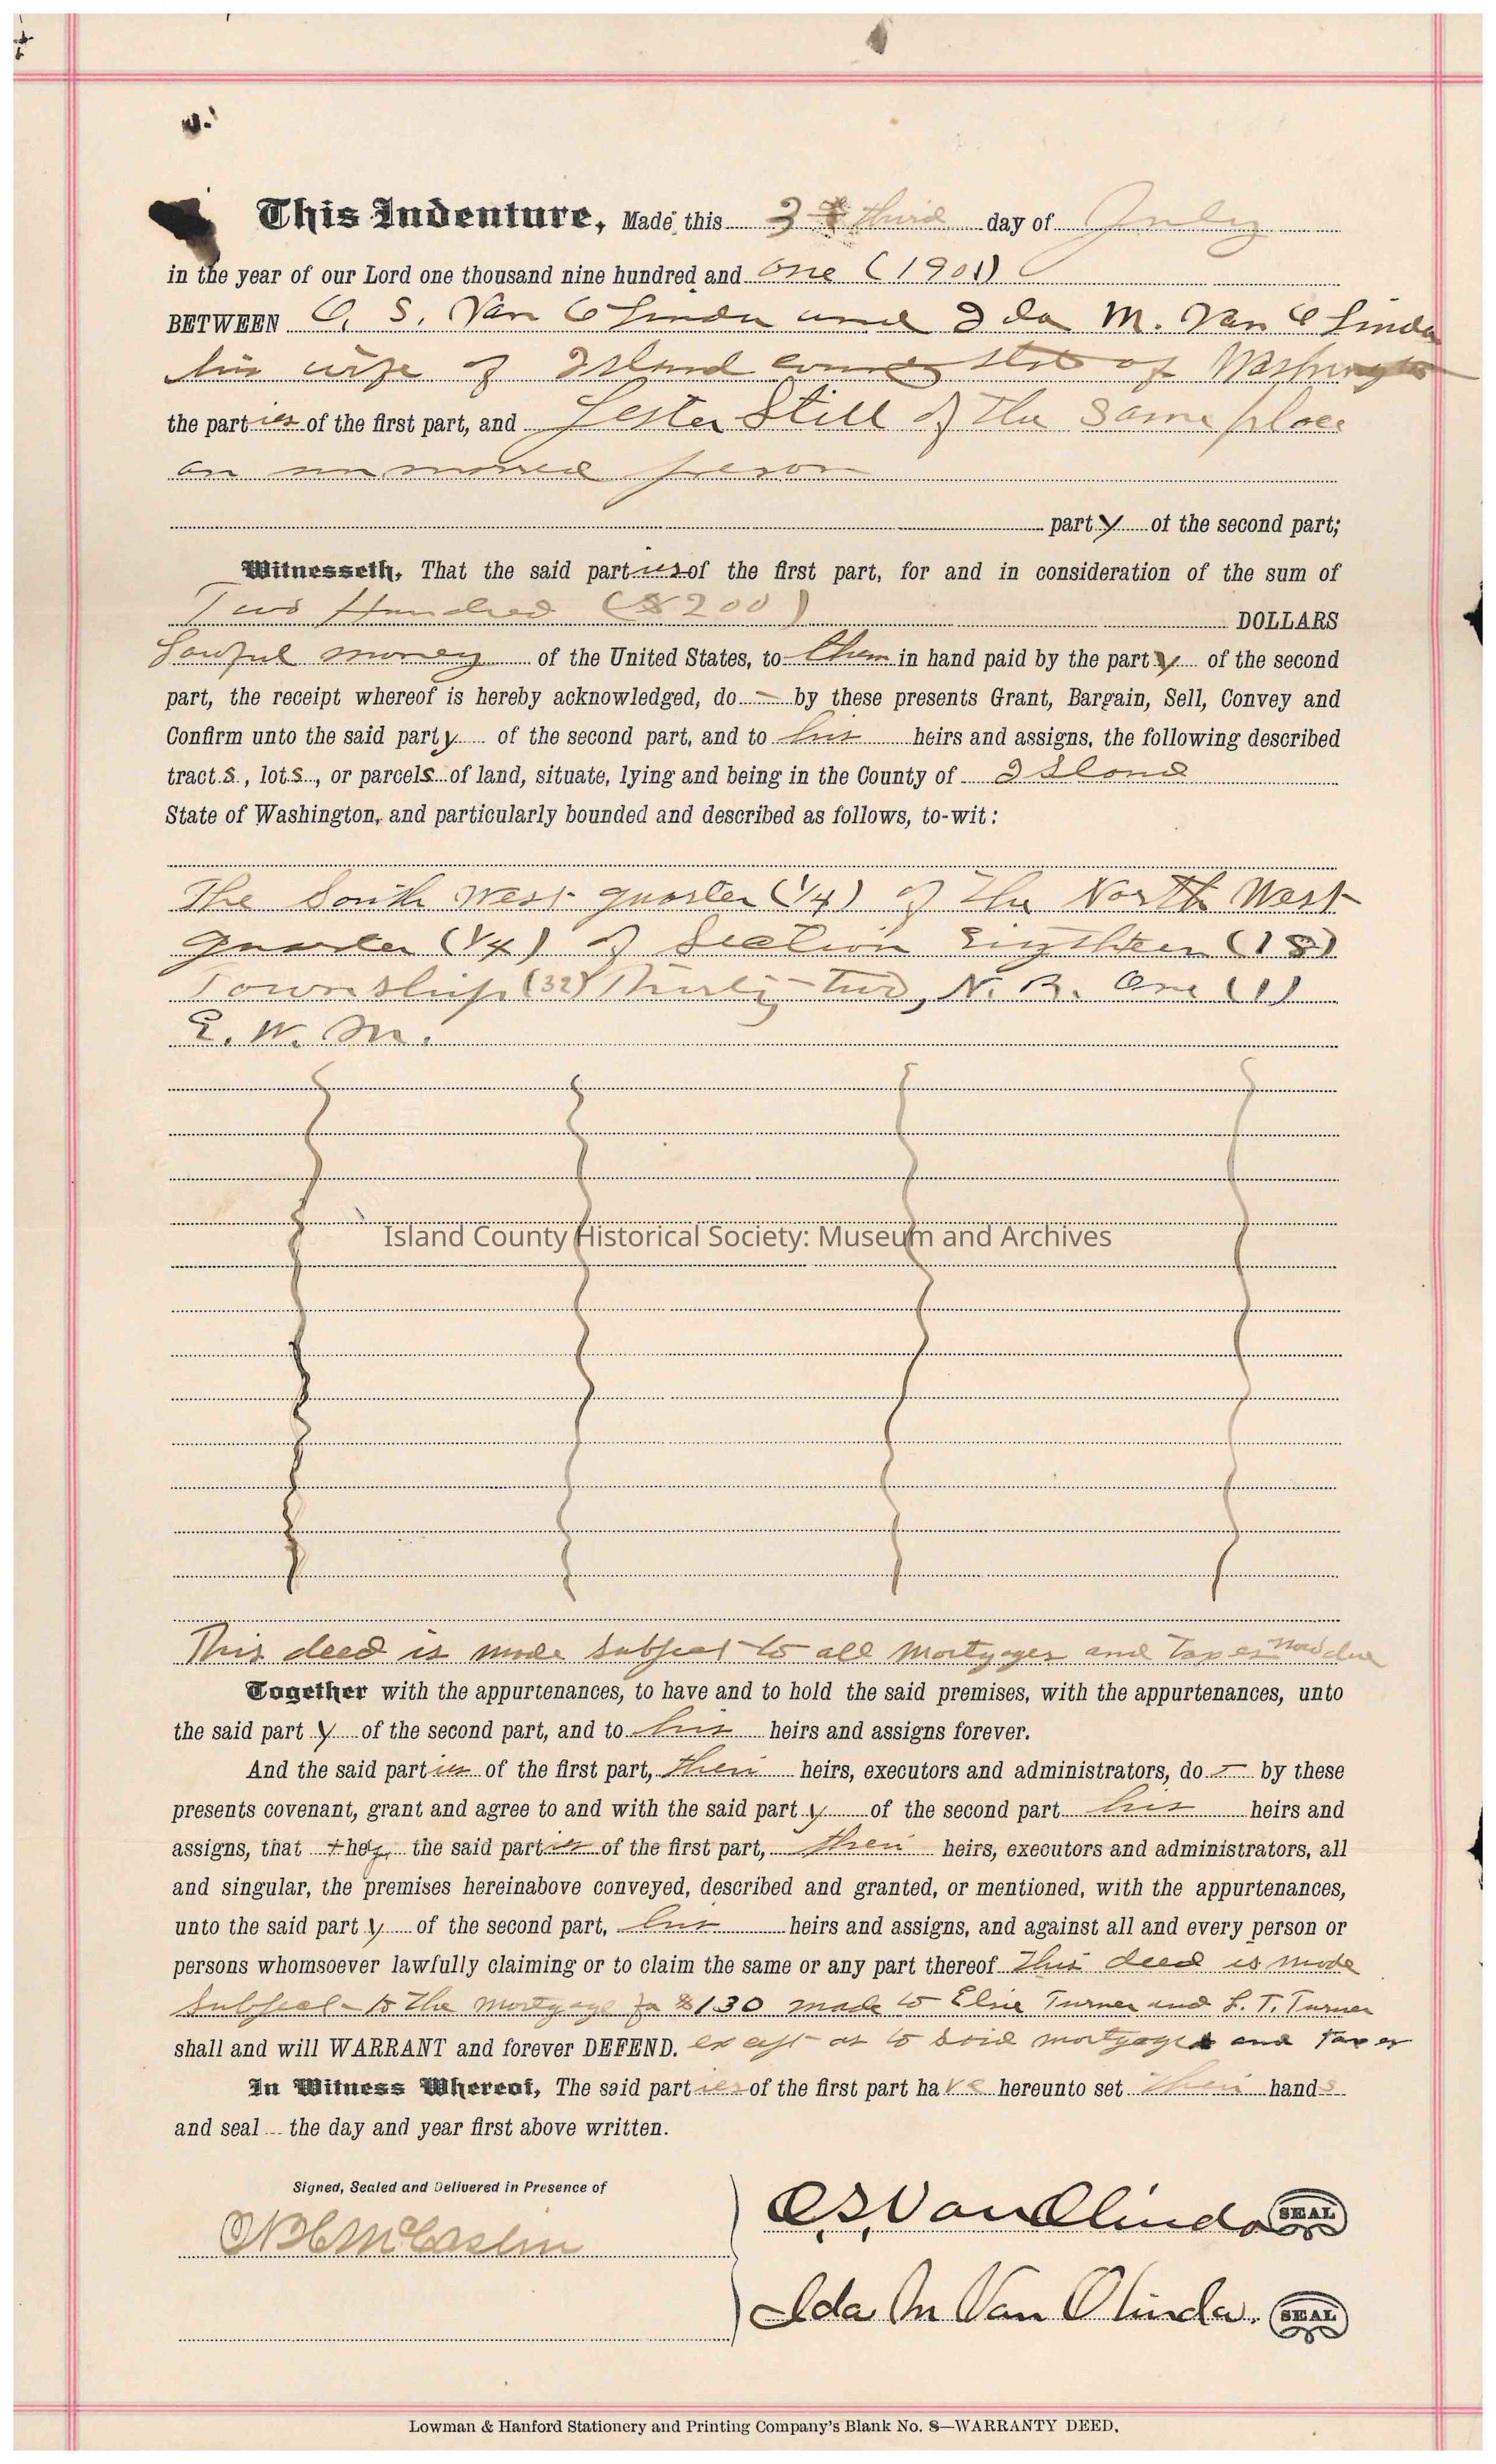 This Indenture, Made this 3 third day of July
in the year of our Lord one thousand nine hundred and One (1901)
BETWEEN O. S. Van Olinda and Ida M. Van Olinda
his wife of Island county State of Washington
the parties of the first part, and Lester Still of the same place
an unmarried person
party of the second part;
Witnesseth, That the said parties of the first part, for and in consideration of the sum of
Two Hundred ($200) DOLLARS
Lawful money of the United States, to them in hand paid by the party of the second
part, the receipt whereof is hereby acknowledged, do — by these presents Grant, Bargain, Sell, Convey and
Confirm unto the said party of the second part, and to his heirs and assigns, the following described
tracts, lots, or parcels of land, situate, lying and being in the County of Island
State of Washington, and particularly bounded and described as follows, to-wit:
The South West quarter (1/4) of the North West
quarter (1/4) of Section Eigthteen (18)
Township (32) Thirty-Two, N. R. One (1)
E. W. M.
Island County Historical Society: Museum and Archives
This deed is made subject to all mortgages and Taxes now due
Together with the appurtenances, to have and to hold the said premises, with the appurtenances, unto
the said party of the second part, and to his heirs and assigns forever.
And the said parties of the first part, their heirs, executors and administrators, do — by these
presents covenant, grant and agree to and with the said party of the second part his heirs and
assigns, that they, the said parties of the first part, their heirs, executors and administrators, all
and singular, the premises hereinabove conveyed, described and granted, or mentioned, with the appurtenances,
unto the said party of the second part, his heirs and assigns, and against all and every person or
persons whomsoever lawfully claiming or to claim the same or any part thereof This deed is made
subject to the mortgage for $130 made to Elsie Turner and L. T. Turner
shall and will WARRANT and forever DEFEND. except as to said mortgages and taxes
In Witness Whereof, The said parties of the first part have hereunto set their hands
and seal the day and year first above written.
Signed, Sealed and Delivered in Presence of
O. S. Van Olinda SEAL
McCaslin
Ida M Van Olinda. SEAL
Lowman & Hanford Stationery and Printing Company's Blank No. 8—WARRANTY DEED.